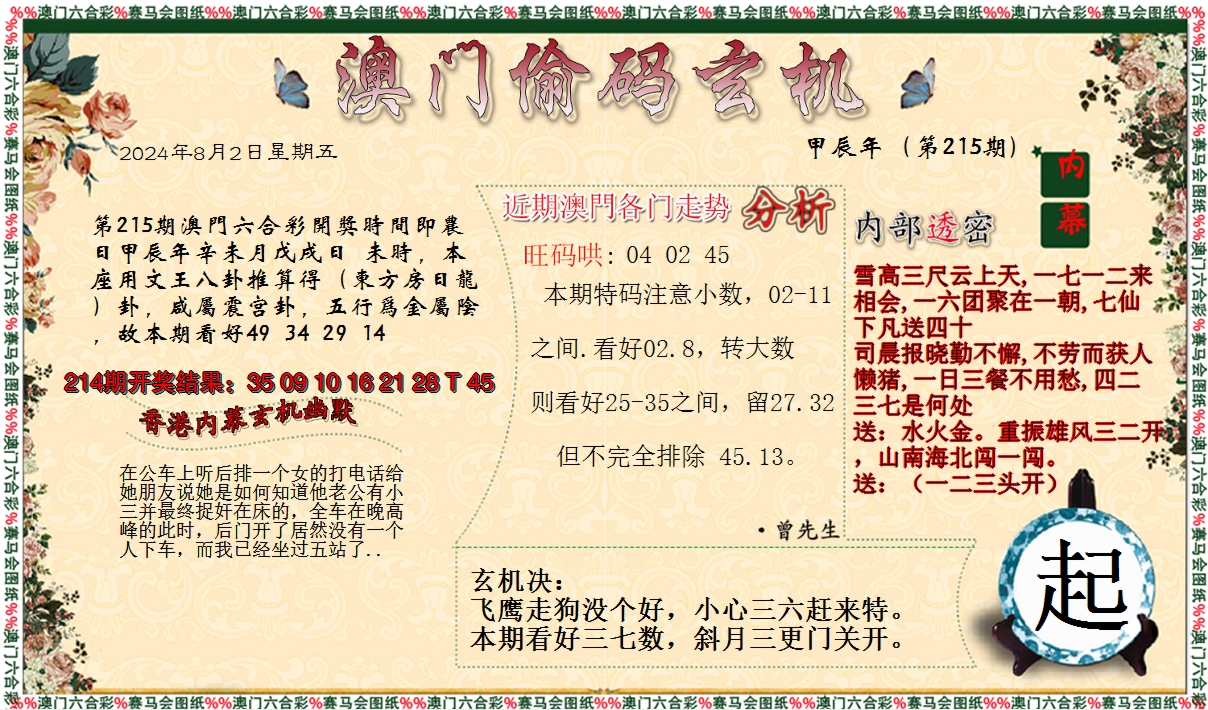 %%澳门六合彩%赛马会图纸%%澳门六合彩%赛马会图纸%%澳门六合彩%赛马会图纸%%澳门六合彩%赛马会图纸%%澳门六合彩%赛马会图纸%%澳门六合彩%赛马会图纸%%
澳门偷码玄机
2024年8月2日星期五
甲辰年 （第215期）
内
幕
第215期澳門六合彩開獎時間即農
日甲辰年辛未月戊戌日 未時，本
座用文王八卦推算得（東方房日龍
）卦，咸屬震宫卦，五行爲金屬陰
，故本期看好49 34 29 14
214期开奖结果：35 09 10 16 21 28 T 45
香港内幕玄机幽默
在公车上听后排一个女的打电话给
她朋友说她是如何知道他老公有小
三并最终捉奸在床的，全车在晚高
峰的此时，后门开了居然没有一个
人下车，而我已经坐过五站了..
近期澳門各门走势 分析
旺码哄: 04 02 45
本期特码注意小数，02-11
之间.看好02.8，转大数
则看好25-35之间，留27.32
但不完全排除 45.13。
·曾先生
内部透密
雪高三尺云上天,一七一二来
相会,一六团聚在一朝,七仙
下凡送四十
司晨报晓勤不懈,不劳而获人
懒猪,一日三餐不用愁,四二
三七是何处
送：水火金。重振雄风三二开
，山南海北闯一闯。
送：（一二三头开）
玄机决：
飞鹰走狗没个好，小心三六赶来特。
本期看好三七数，斜月三更门关开。
起
%%澳门六合彩%赛马会图纸%%澳门六合彩%赛马会图纸%%澳门六合彩%赛马会图纸%%澳门六合彩%赛马会图纸%%澳门六合彩%赛马会图纸%%澳门六合彩%赛马会图纸%%